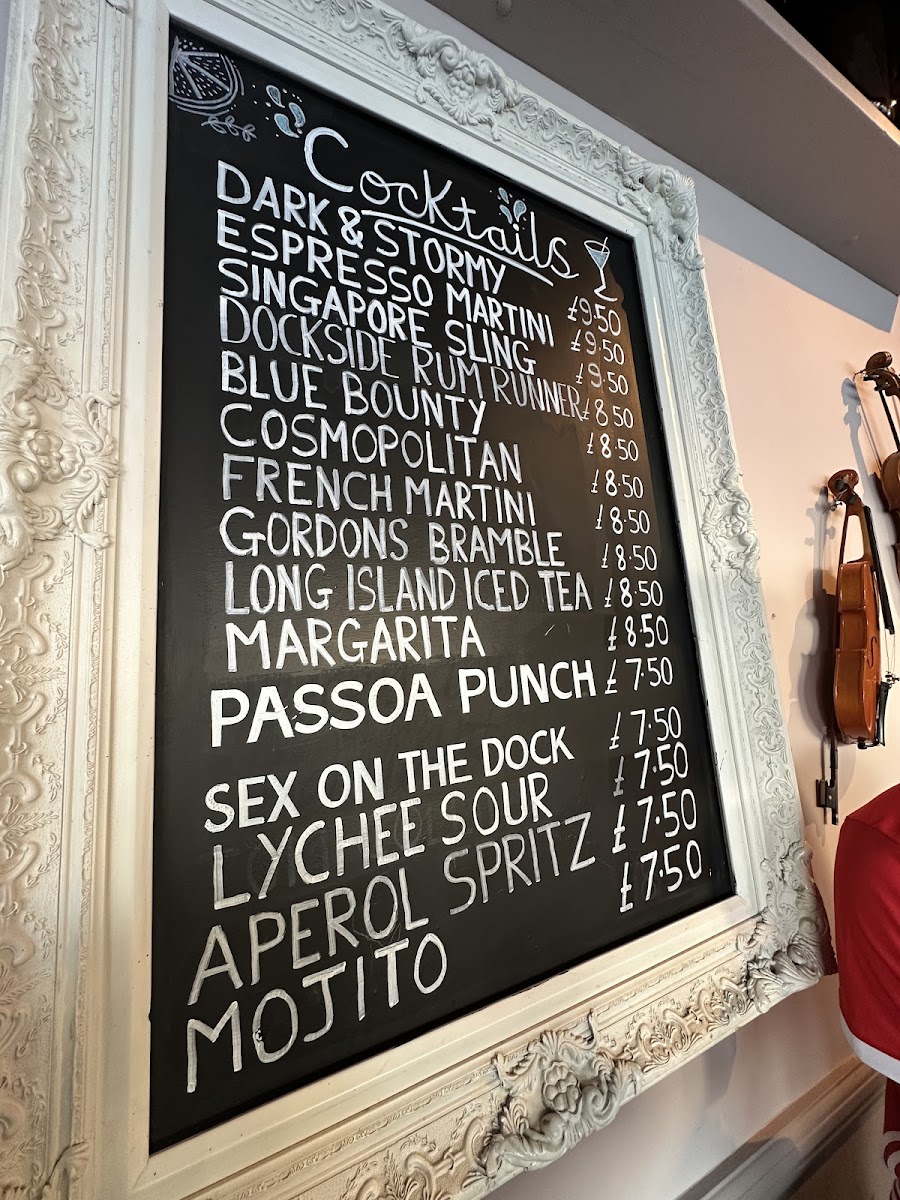 Cocktails
DARK & STORMY £9.50
ESPRESSO MARTINI £9.50
SINGAPORE SLING £9.50
DOCKSIDE RUM RUNNER £8.50
BLUE BOUNTY £8.50
COSMOPOLITAN £8.50
FRENCH MARTINI £8.50
GORDONS BRAMBLE £8.50
LONG ISLAND ICED TEA £8.50
MARGARITA £8.50
PASSOA PUNCH £7.50
SEX ON THE DOCK £7.50
LYCHEE SOUR £7.50
APEROL SPRITZ £7.50
MOJITO £7.50